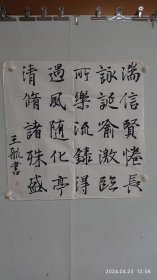 湍信賢惓長
詠誕喻激臨
所樂流錄得
過風隨化亭
清脩諸殊盛
王航書
2024.04.23 12:06